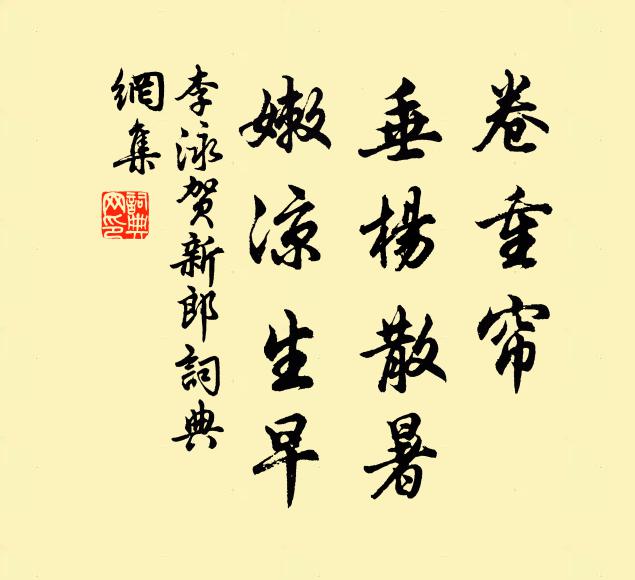 卷重帘
垂杨散暑
嫩凉生早
李泳贺新郎詞典
網集
詞典网印